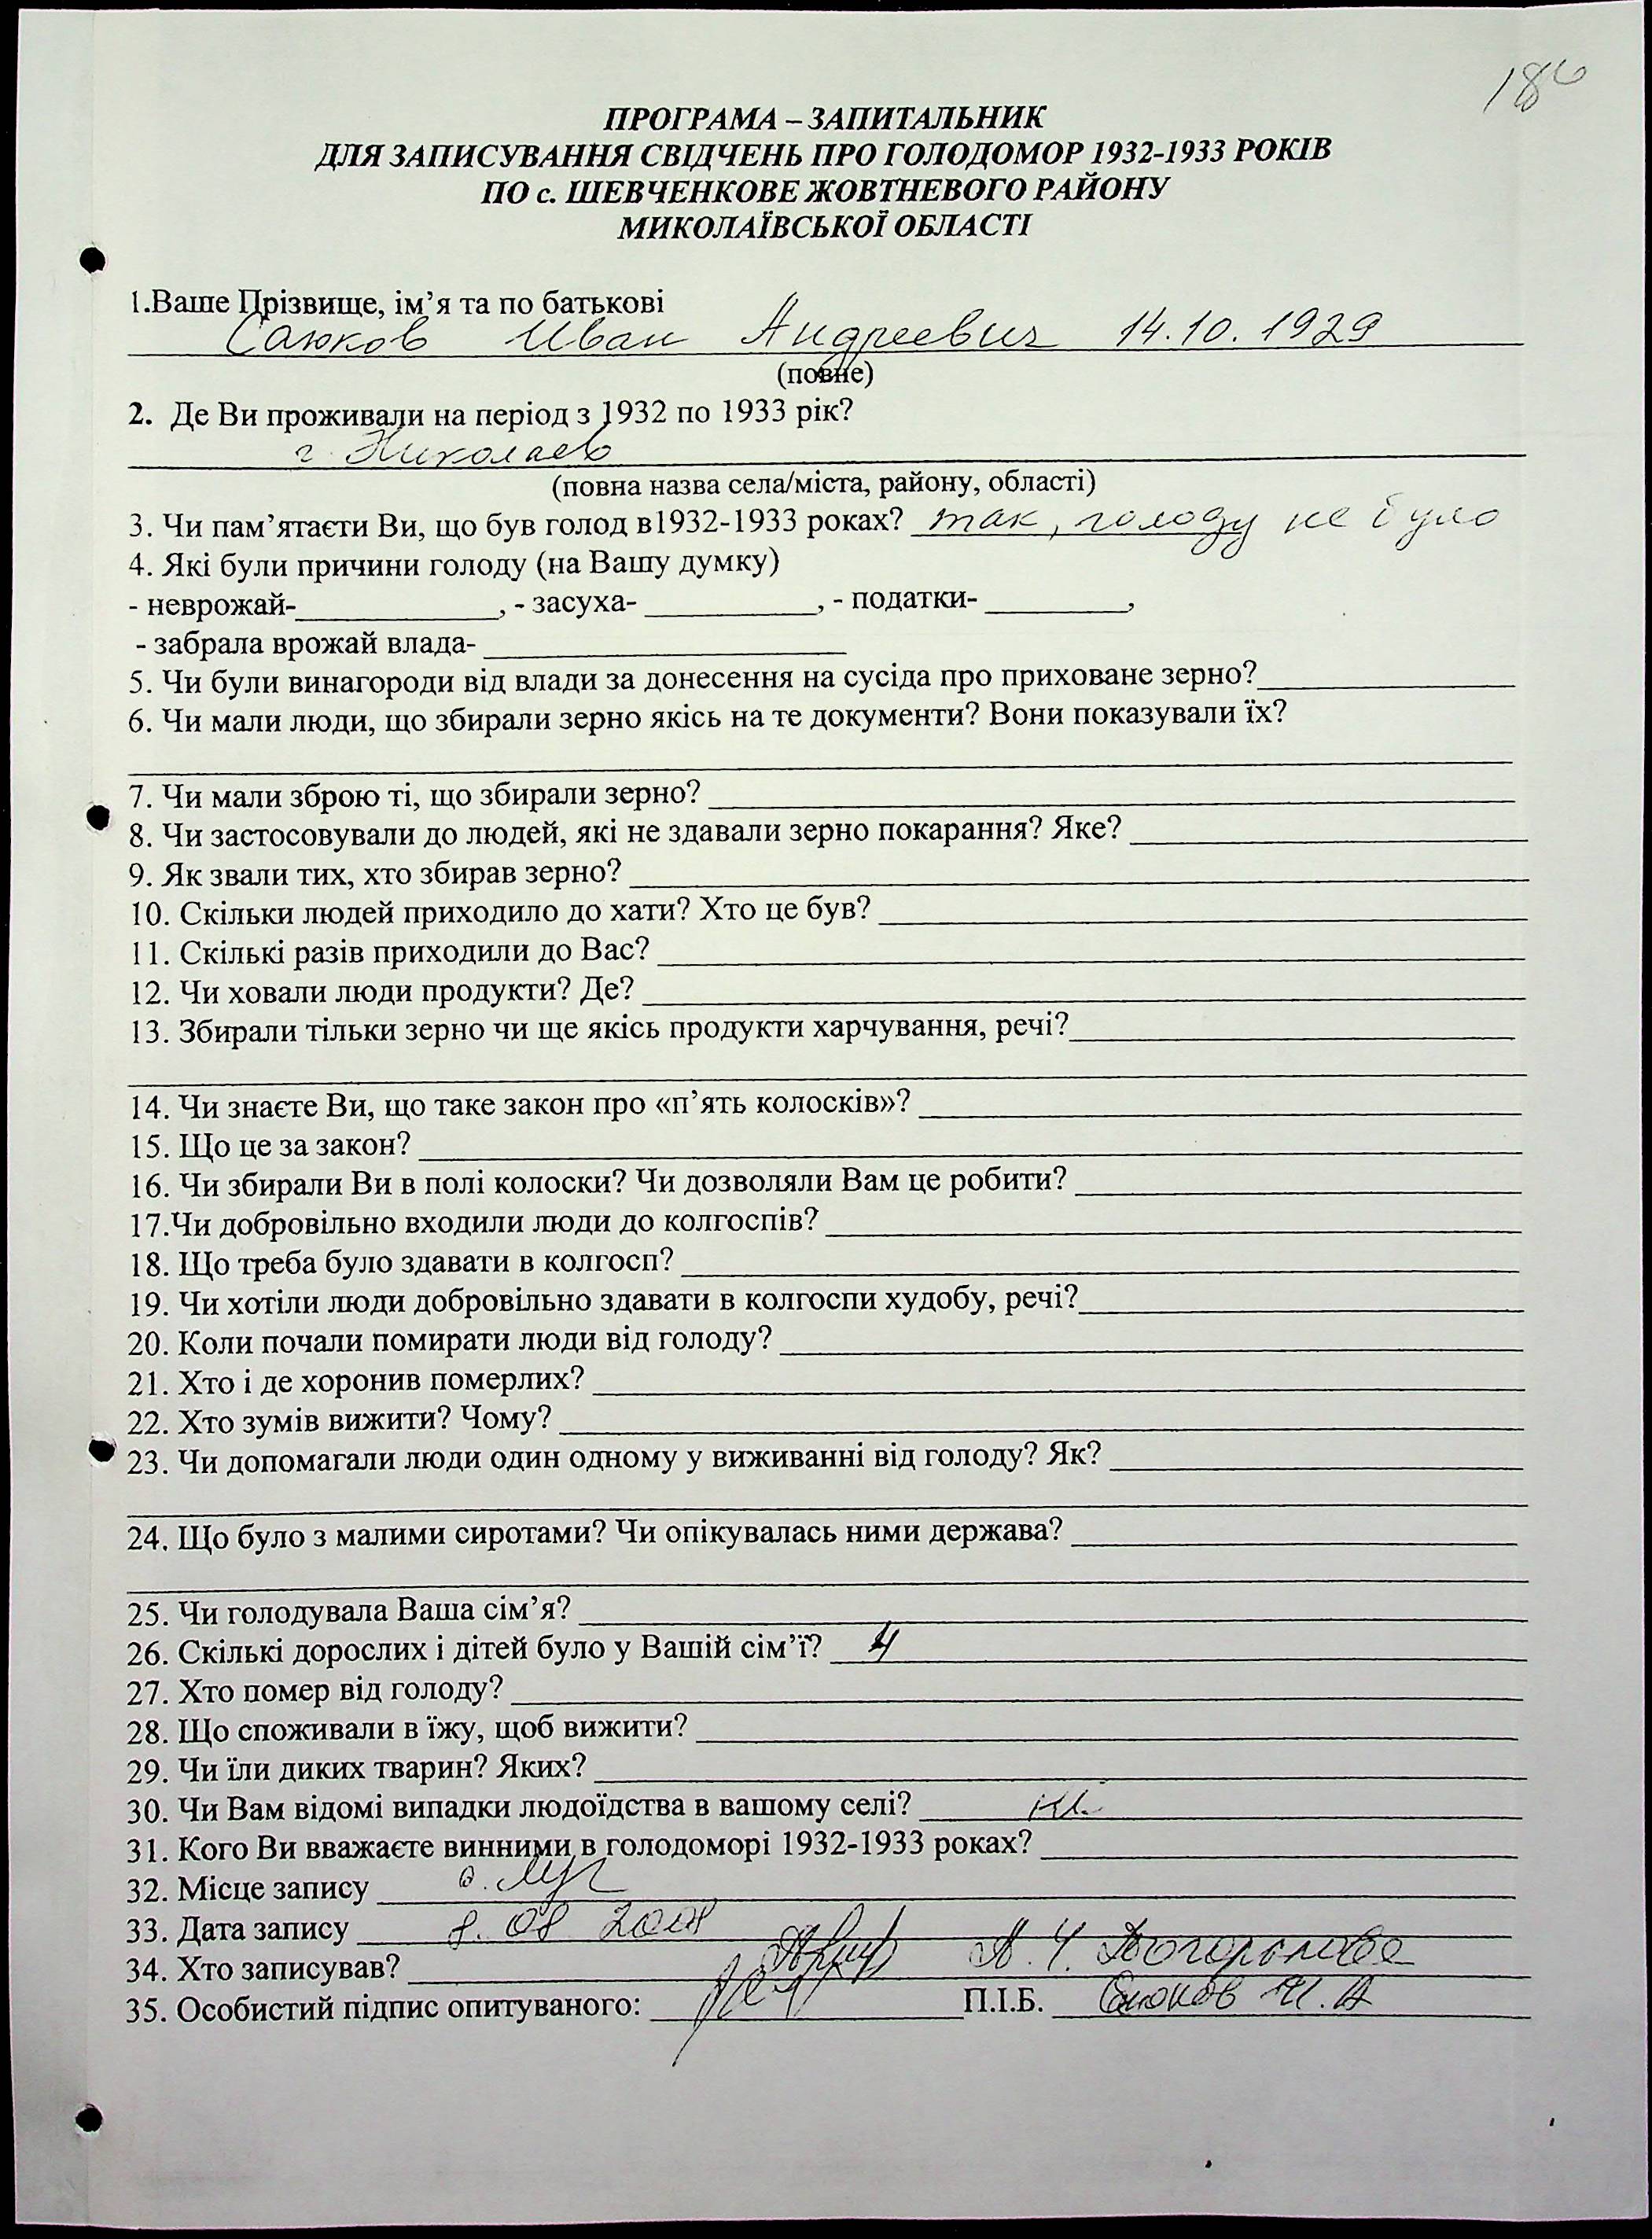 186
ПРОГРАМА – ЗАПИТАЛЬНИК
ДЛЯ ЗАПИСУВАННЯ СВІДЧЕНЬ ПРО ГОЛОДОМОР 1932-1933 РОКІВ
ПО с. ШЕВЧЕНКОВЕ ЖОВТНЕВОГО РАЙОНУ
МИКОЛАЇВСЬКОЇ ОБЛАСТІ
1.Ваше Прізвище, ім’я та по батькові
Саюков Иван Андреевич 14.10.1929
(повне)
2. Де Ви проживали на період з 1932 по 1933 рік?
г. Николаев
(повна назва села/міста, району, області)
3. Чи пам’ятаєти Ви, що був голод в1932-1933 роках? так, голоду не було
4. Які були причини голоду (на Вашу думку)
- неврожай-__________, - засуха- __________, - податки- __________,
- забрала врожай влада- __________
5. Чи були винагороди від влади за донесення на сусіда про приховане зерно?
6. Чи мали люди, що збирали зерно якісь на те документи? Вони показували їх?
7. Чи мали зброю ті, що збирали зерно?
8. Чи застосовували до людей, які не здавали зерно покарання? Яке?
9. Як звали тих, хто збирав зерно?
10. Скільки людей приходило до хати? Хто це був?
11. Скількі разів приходили до Вас?
12. Чи ховали люди продукти? Де?
13. Збирали тільки зерно чи ще якісь продукти харчування, речі?
14. Чи знаєте Ви, що таке закон про «п’ять колосків»?
15. Що це за закон?
16. Чи збирали Ви в полі колоски? Чи дозволяли Вам це робити?
17.Чи добровільно входили люди до колгоспів?
18. Що треба було здавати в колгосп?
19. Чи хотіли люди добровільно здавати в колгоспи худобу, речі?
20. Коли почали помирати люди від голоду?
21. Хто і де хоронив померлих?
22. Хто зумів вижити? Чому?
23. Чи допомагали люди один одному у виживанні від голоду? Як?
24. Що було з малими сиротами? Чи опікувалась ними держава?
25. Чи голодувала Ваша сім’я?
26. Скількі дорослих і дітей було у Вашій сім’ї? 4
27. Хто помер від голоду?
28. Що споживали в їжу, щоб вижити?
29. Чи їли диких тварин? Яких?
30. Чи Вам відомі випадки людоїдства в вашому селі? ні
31. Кого Ви вважаєте винними в голодоморі 1932-1933 роках?
32. Місце запису с. Луч
33. Дата запису 8. 08 2008
34. Хто записував?
35. Особистий підпис опитуваного: П.І.Б. Саюков И.А